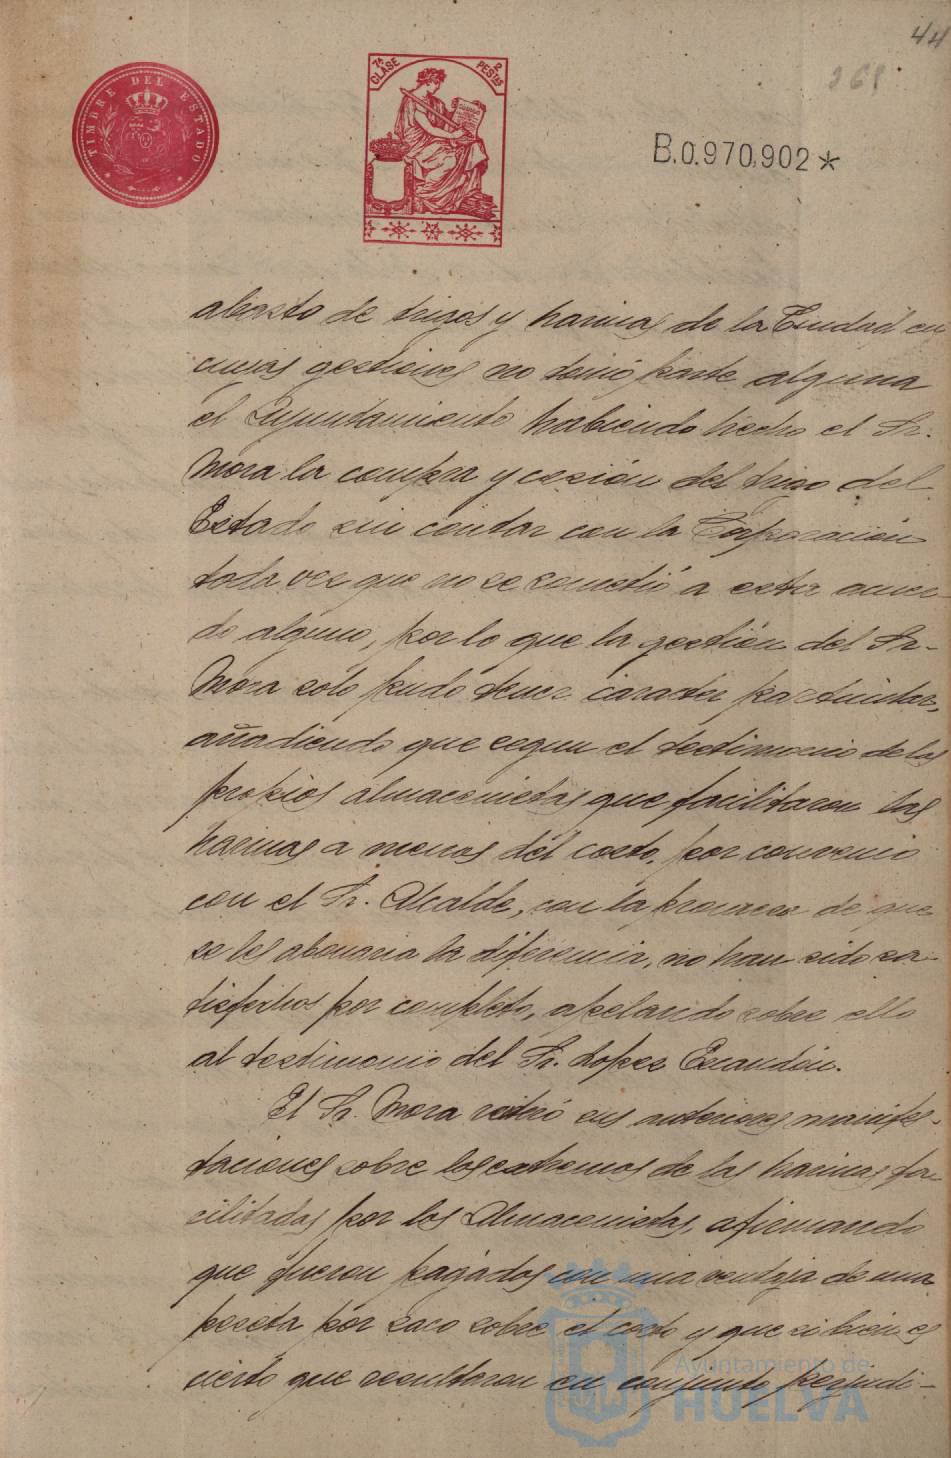 44
268
TIMBRE DEL ESTADO
7ª CLASE 2 PESTAS
B.0.970,902*
abasto de trigos y harinas de la Ciudad en
cuyas gestiones no tenia parte alguna
el Ayuntamiento habiendo hecho el Sr.
Mora la compra y cesión del trigo del
Estado sin contar con la Corporación
toda vez que no se sometió a esta acuer-
do alguno, por lo que la gestión del Sr.
Mora solo pudo tener caracter particular,
añadiendo que segun el testimonio de los
propios almacenistas que facilitaron las
harinas a menos del costo, por convenio
con el Sr. Alcalde, con la promesa de que
se les abonaria la diferencia, no han sido sa-
tisfechos por completo, apelando sobre ello
al testimonio del Sr. Lopez Escandón.
El Sr. Mora reiteró sus anteriores manifes-
taciones sobre los extremos de las harinas fa-
cilitadas por los Almacenistas, afirmando
que fueron pagados con una ventaja de una
peseta por saco sobre el costo y que si bien es
cierto que resultaron en conjunto perjudi-
Ayuntamiento de
HUELVA